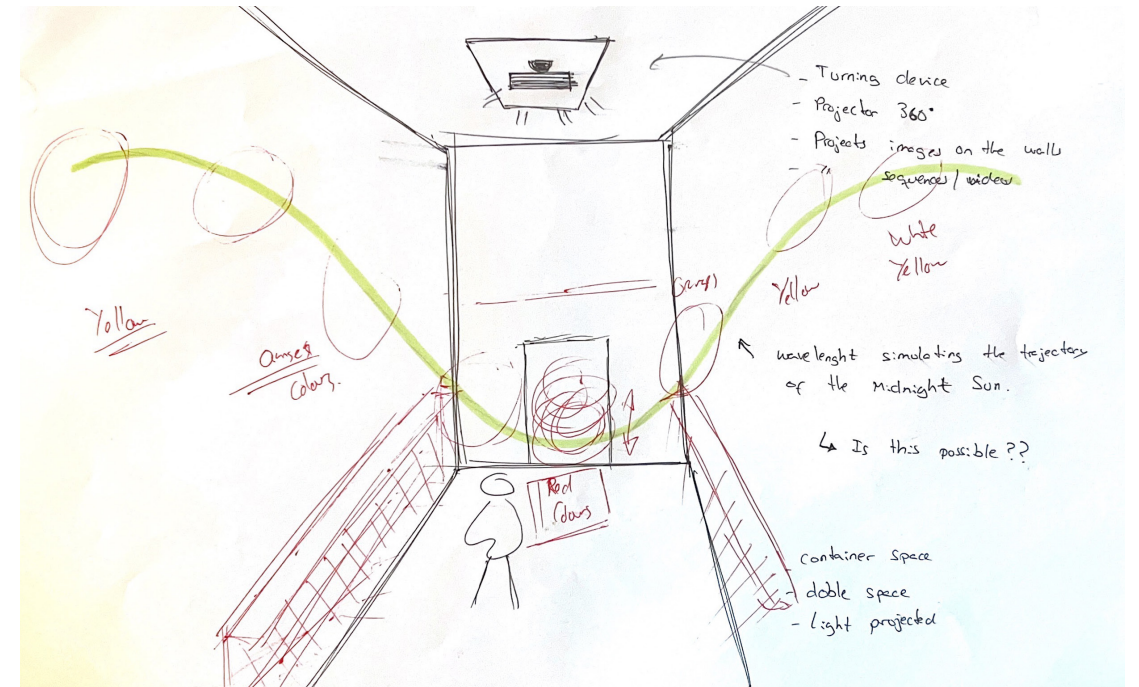 - Turning device
- Projector 360°
- Projects images on the walls
- sequences / videos
White
Yellow
Yellow
Yellow
Colours.
wavelenght simulating the trajectory
of the Midnight Sun.
↳ Is this possible ??
Red
Colours
container space
- doble space
- light projected